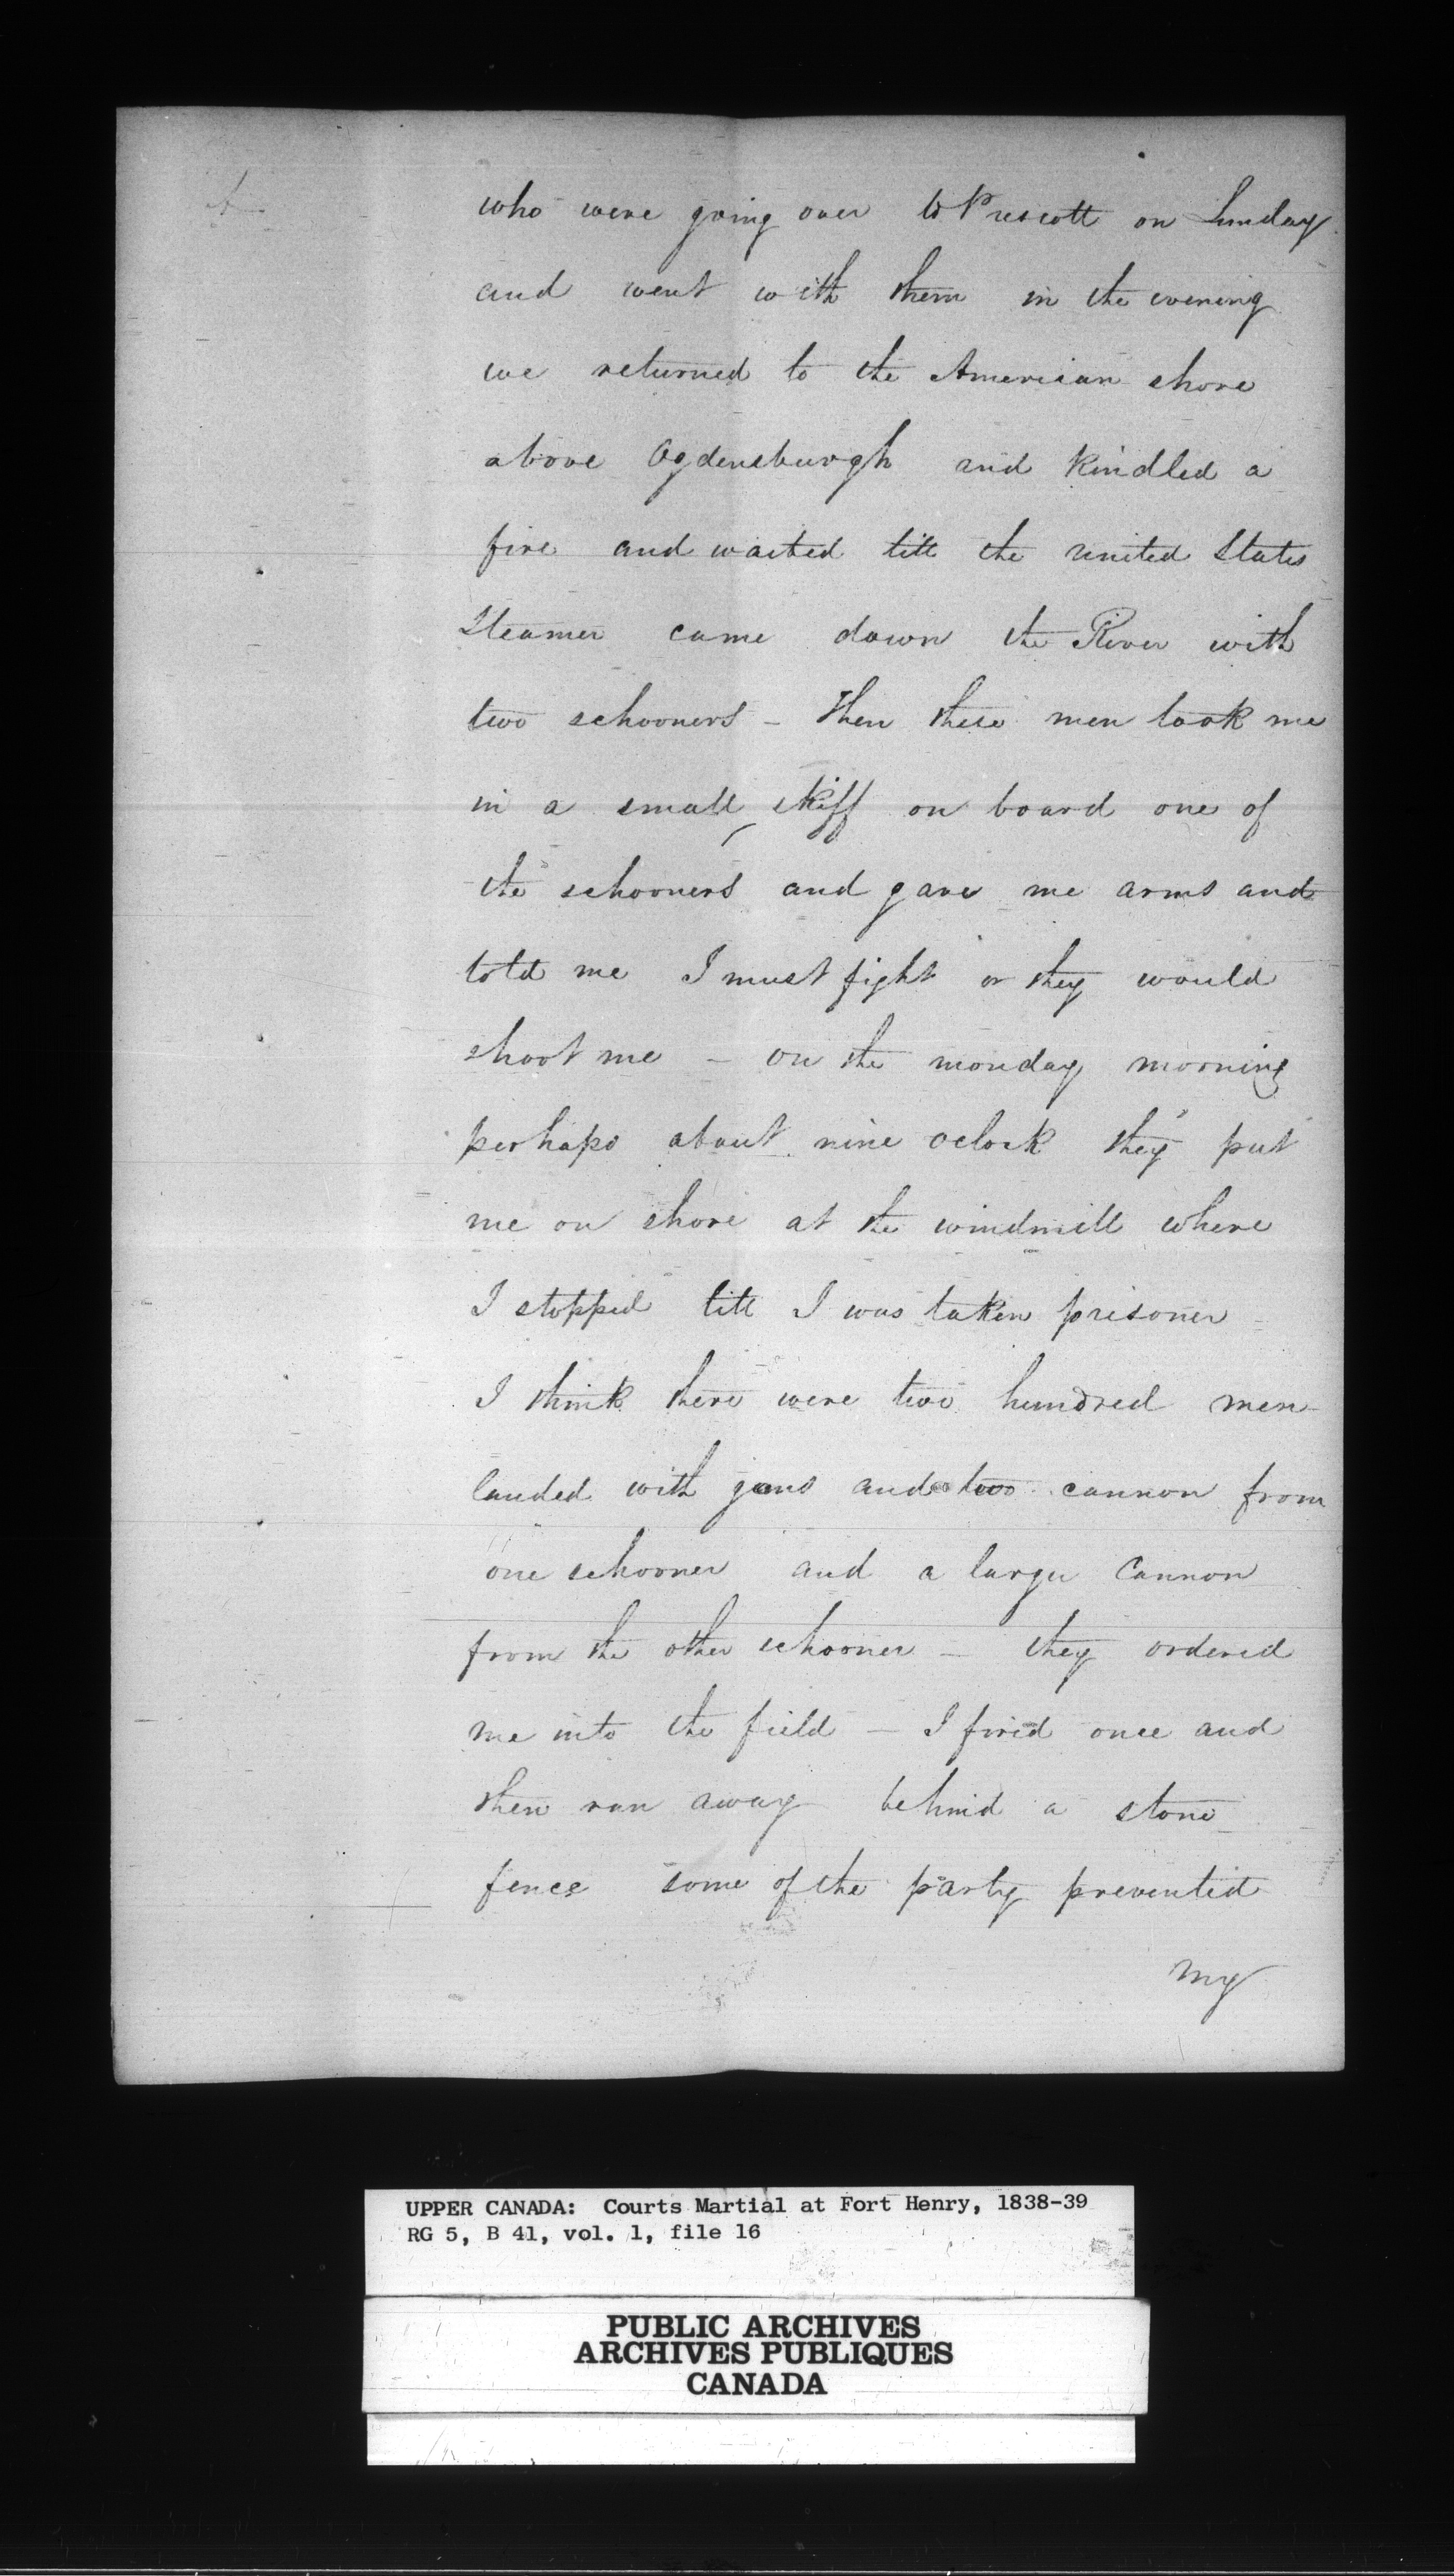 who were going over to Prescott on Sunday
and went with them in the evening
we returned to the American shore
above Ogdensburgh and kindled a
fire and waited till the united States
Steamer came down the River with
two schooners - then these men took me
in a small skiff on board one of
the schooners and gave me arms and
told me I must fight or they would
shoot me - on the monday morning
perhaps about nine oclock they put
me on shore at the windmill where
I stopped till I was taken prisoner
I think there were two hundred men
landed with guns and two cannon from
one schooner and a large Cannon
from the other schooner - they ordered
me into the field - I fired once and
then ran away behind a stone
fence some of the party prevented
my
UPPER CANADA: Courts Martial at Fort Henry, 1838-39
RG 5, B 41, vol. 1, file 16
PUBLIC ARCHIVES
ARCHIVES PUBLIQUES
CANADA